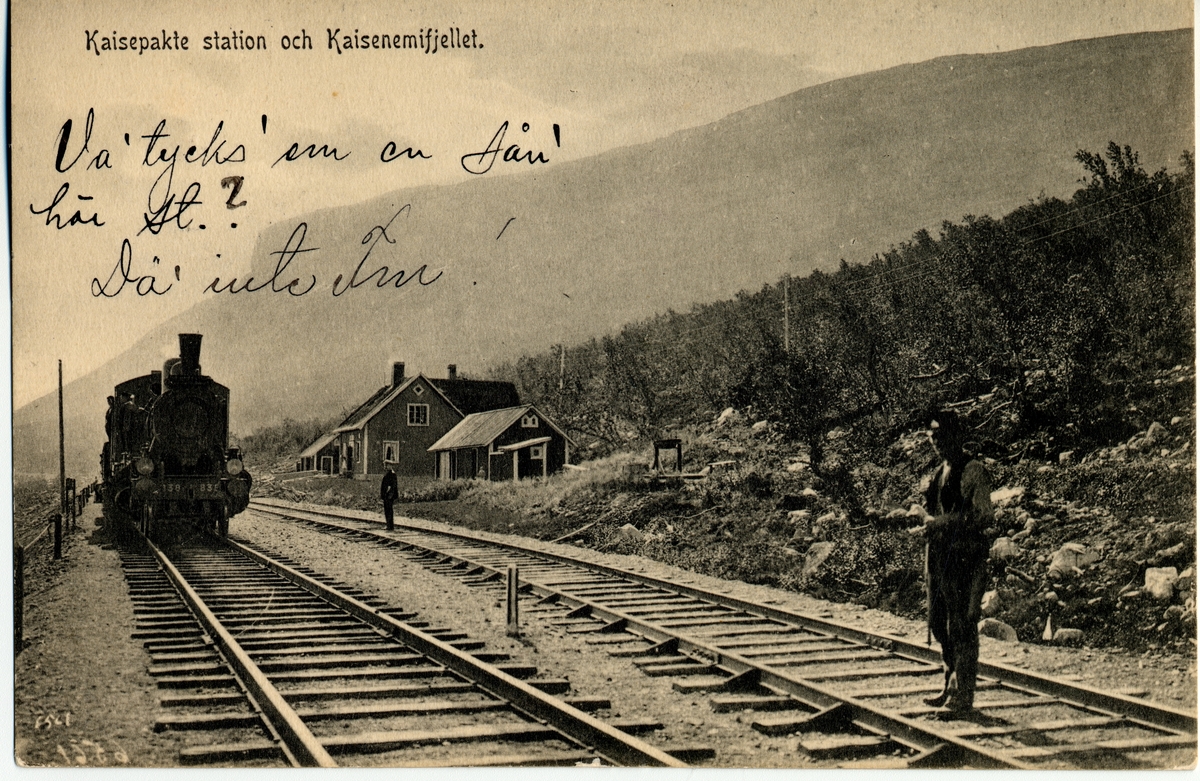 Kaisepakte station och Kaisenemifjellet.
Va' tycks' om en sån'
här st.?
Dä' inte Fm!